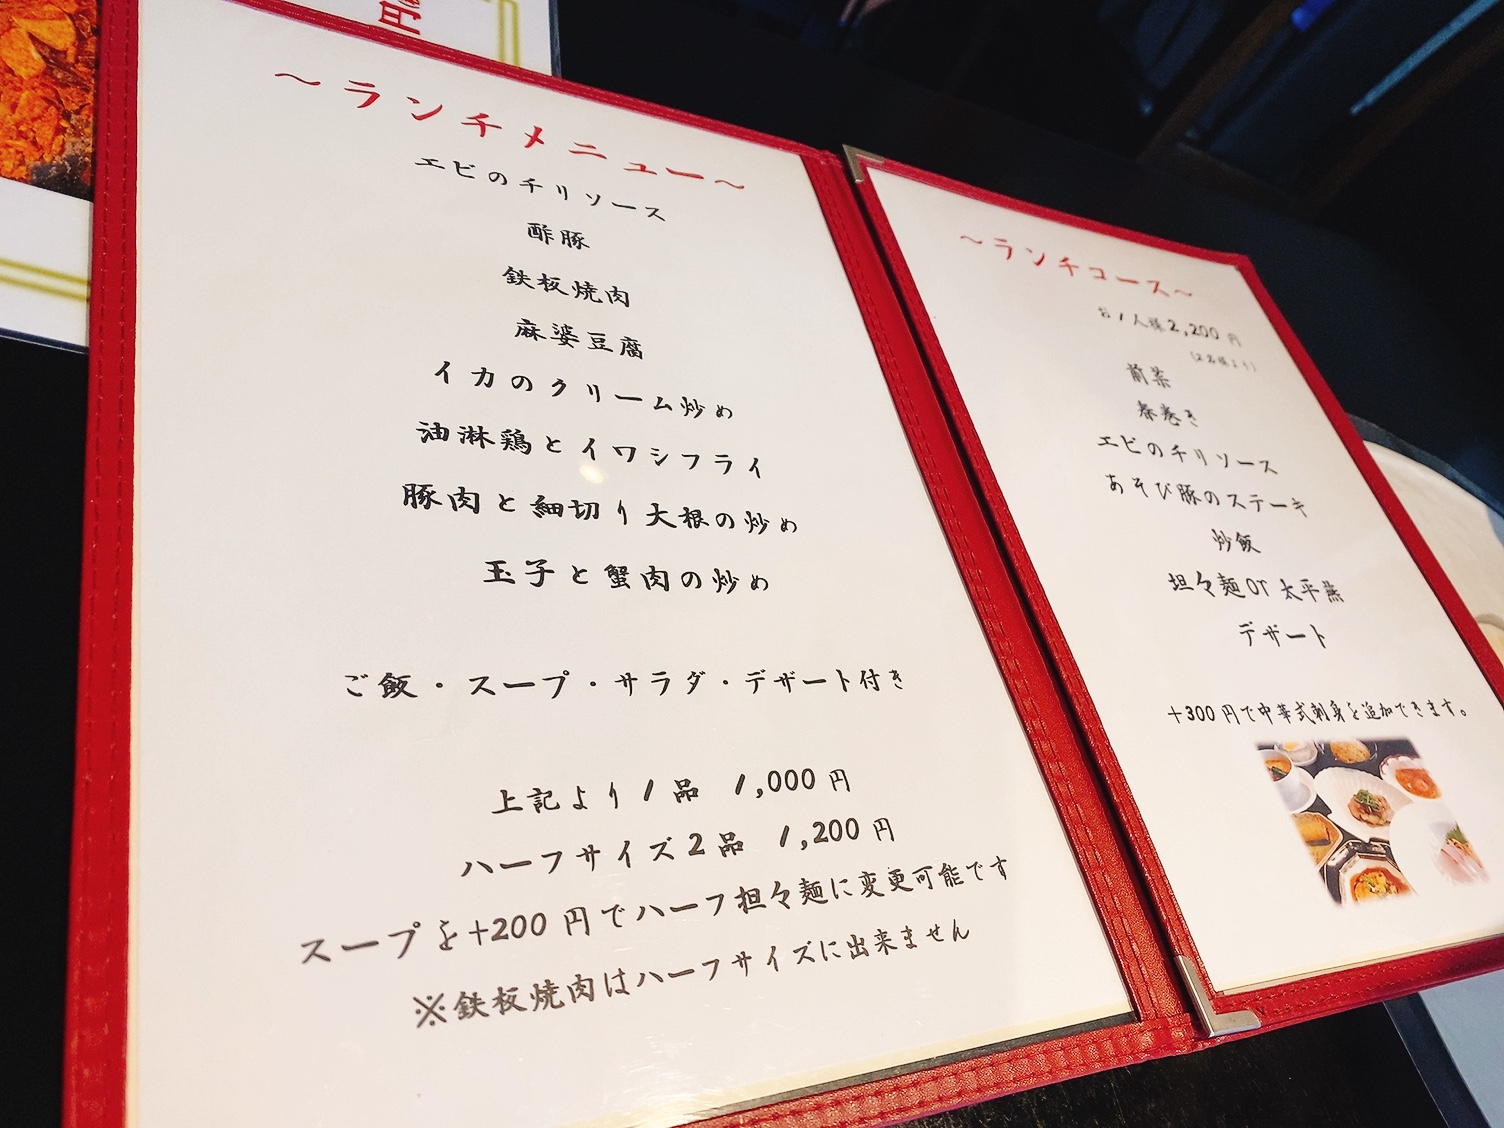 ～ランチメニュー～
エビのチリソース
酢豚
鉄板焼肉
麻婆豆腐
イカのクリーム炒め
油淋鶏とイワシフライ
豚肉と細切り大根の炒め
玉子と蟹肉の炒め
ご飯・スープ・サラダ・デザート付き
上記より1品 1,000円
ハーフサイズ2品 1,200円
スープを+200円でハーフ担々麺に変更可能です
※鉄板焼肉はハーフサイズに出来ません
～ランチコース～
お1人様2,200円
(2名様より)
前菜
春巻き
エビのチリソース
あそび豚のステーキ
炒飯
担々麺or太平燕
デザート
+300円で中華式刺身を追加できます。